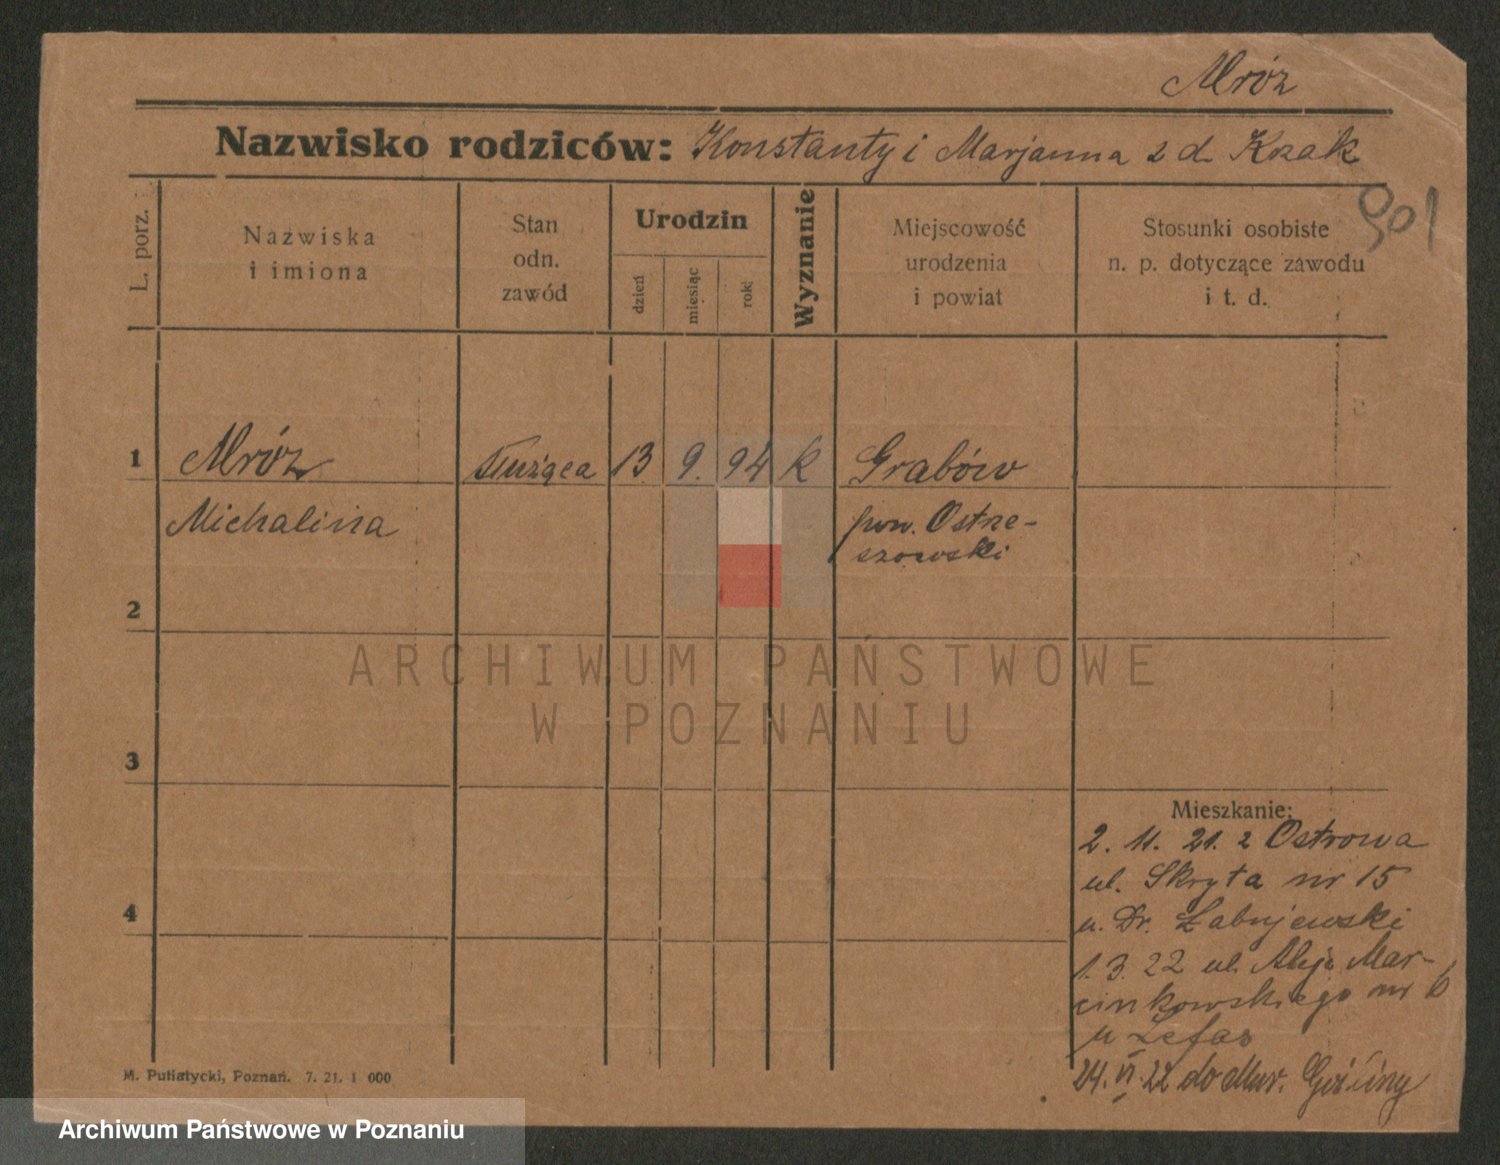 Mróz
Nazwisko rodziców: Konstanty i Marjanna z d. Krzak
901
L. porz.
Nazwiska
i imiona
Stan
odn.
zawód
Urodzin
dzień
miesiąc
rok
Wyznanie
Miejscowość
urodzenia
i powiat
Stosunki osobiste
n. p. dotyczące zawodu
i t. d.
1 Mróz służąca 13 9. 94 k Grabów
Michalina pow. Ostrze-
szowski
2
3
4
Mieszkanie:
2. 11. 21. z Ostrowa
ul. Skryta nr 15
u. Dr.
1. 3. 22 ul. Aleja Mar-
cinkowskiego nr 6
u
24. VI. 22 do Mur. Gośliny
M. Putiatycki, Poznań. 7. 21. 1 000
ARCHIWUM PAŃSTWOWE
W POZNANIU
Archiwum Państwowe w Poznaniu